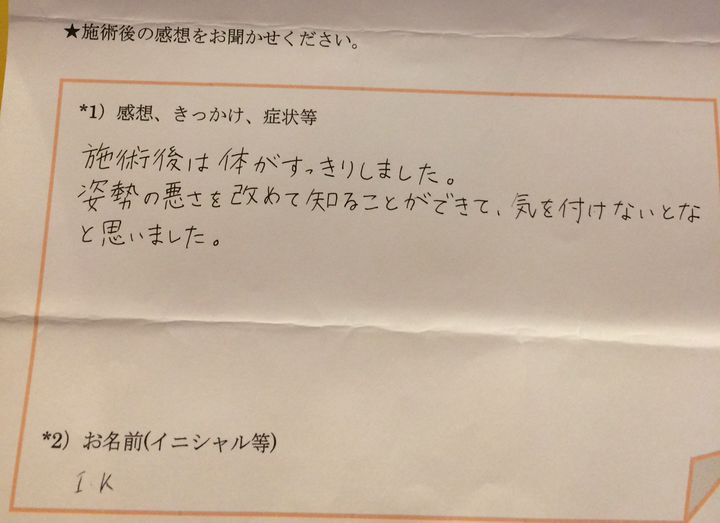 ★施術後の感想をお聞かせください。
*1）感想、きっかけ、症状等
施術後は体がすっきりしました。
姿勢の悪さを改めて知ることができて、気を付けないとな
と思いました。
*2）お名前(イニシャル等)
I.K